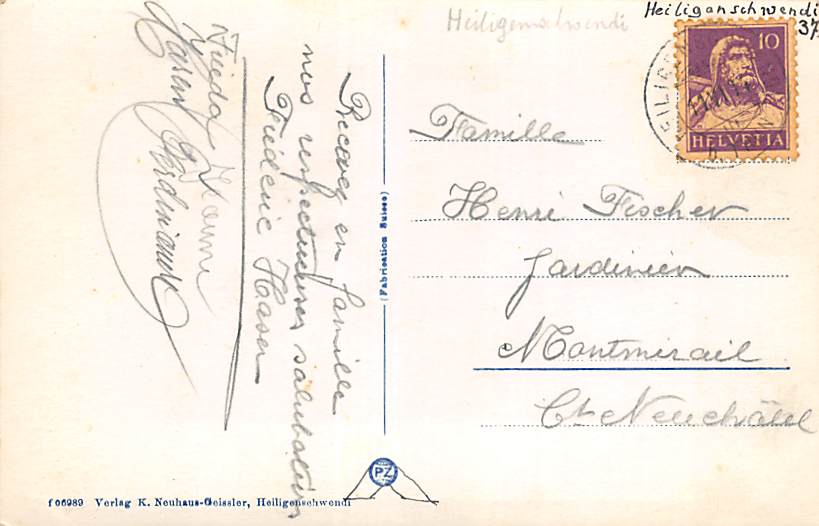 Heiliganschwendi
37
Heiligenschwendi
10
HELVETIA
Famille
Henri Fischer
Jardinier
Montmirail
Ct. Neuchâtel
Recevez en famille
nos respectueuses salutations
Fridéric Hasen
Frieda
Hasen Ferdinand
(Fabrication Suisse)
PZ
f 06989 Verlag K. Neuhaus-Geissler, Heiligenschwendi